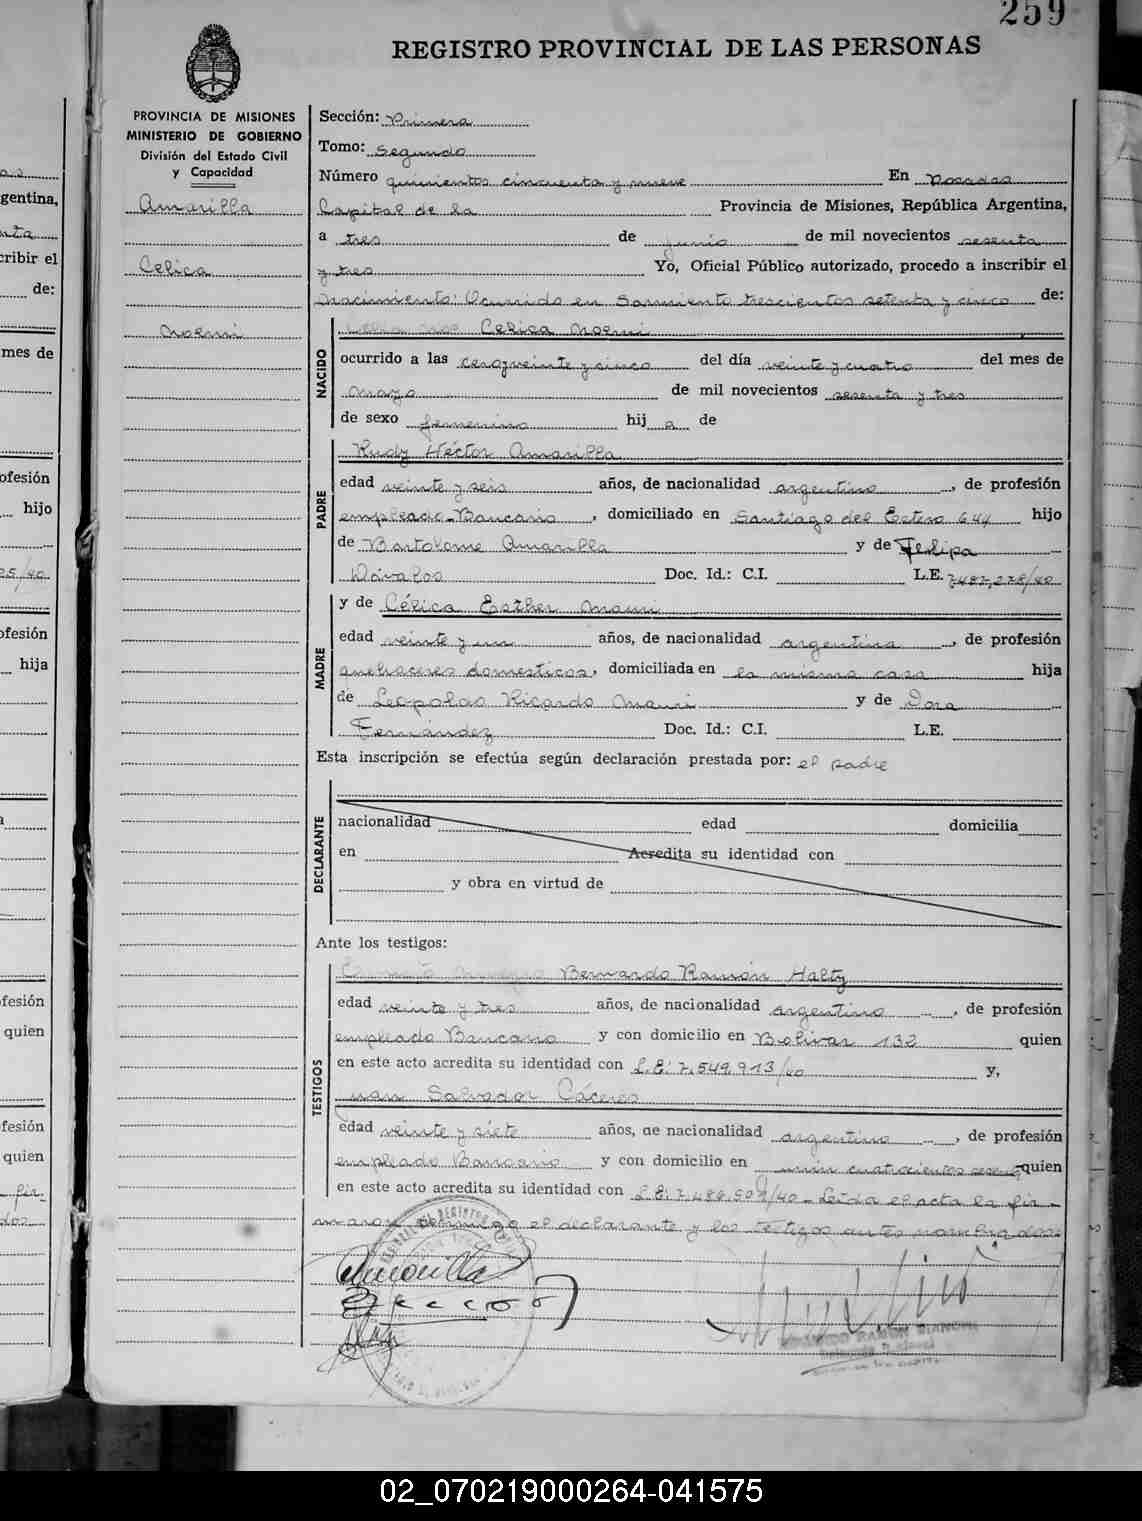 259
REGISTRO PROVINCIAL DE LAS PERSONAS
PROVINCIA DE MISIONES
MINISTERIO DE GOBIERNO
División del Estado Civil
y Capacidad
Amarilla
Celica
Noemi
Sección: Primera
Tomo: Segundo
Número quinientos cincuenta y nueve En Posadas
Capital de la Provincia de Misiones, República Argentina,
a tres de junio de mil novecientos sesenta
y tres Yo, Oficial Público autorizado, procedo a inscribir el
nacimiento: Ocurrido en Sarmiento trescientos setenta y cinco de:
NACIDO
Celica Noemi
ocurrido a las cero y veinte y cinco del día veinte y cuatro del mes de
mayo de mil novecientos sesenta y tres
de sexo femenino hij a de
PADRE
Rudy Héctor Amarilla
edad veinte y seis años, de nacionalidad argentino, de profesión
empleado-Bancario, domiciliado en Santiago del Estero 644 hijo
de Bartolome Amarilla y de Felipa
Dávalos Doc. Id.: C.I. L.E. 7,487,278/40
MADRE
y de Célica Esther Mauri
edad veinte y un años, de nacionalidad argentina, de profesión
quehaceres domesticos, domiciliada en la misma casa hija
de Leopoldo Ricardo Mauri y de Dora
Fernández Doc. Id.: C.I. L.E.
Esta inscripción se efectúa según declaración prestada por: el padre
DECLARANTE
nacionalidad edad domicilia
en Acredita su identidad con
y obra en virtud de
Ante los testigos:
TESTIGOS
Bernardo Ramón Halty
edad veinte y tres años, de nacionalidad argentino, de profesión
empleado Bancario y con domicilio en Bolivar 132 quien
en este acto acredita su identidad con L.E: 7.549.913/40 y,
Juan Salvador Cáceres
edad veinte y siete años, de nacionalidad argentino, de profesión
empleado Bancario y con domicilio en cuatrocientos quien
en este acto acredita su identidad con L.E: 7,486,909/40 - Leída el acta la fir-
maron conmigo el declarante y los testigos antes nombrados
Amarilla
02_070219000264-041575